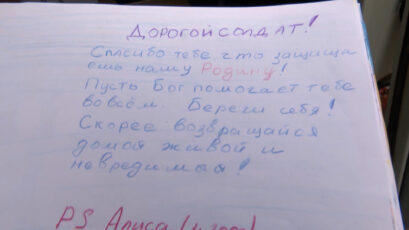 ДОРОГОЙ СОЛДАТ!
Спасибо тебе что защища
ешь нашу Родину!
Пусть Бог помогает тебе
во всём. Береги себя!
Скорее возвращайся
домой живой и
невредимый!
PS Алиса